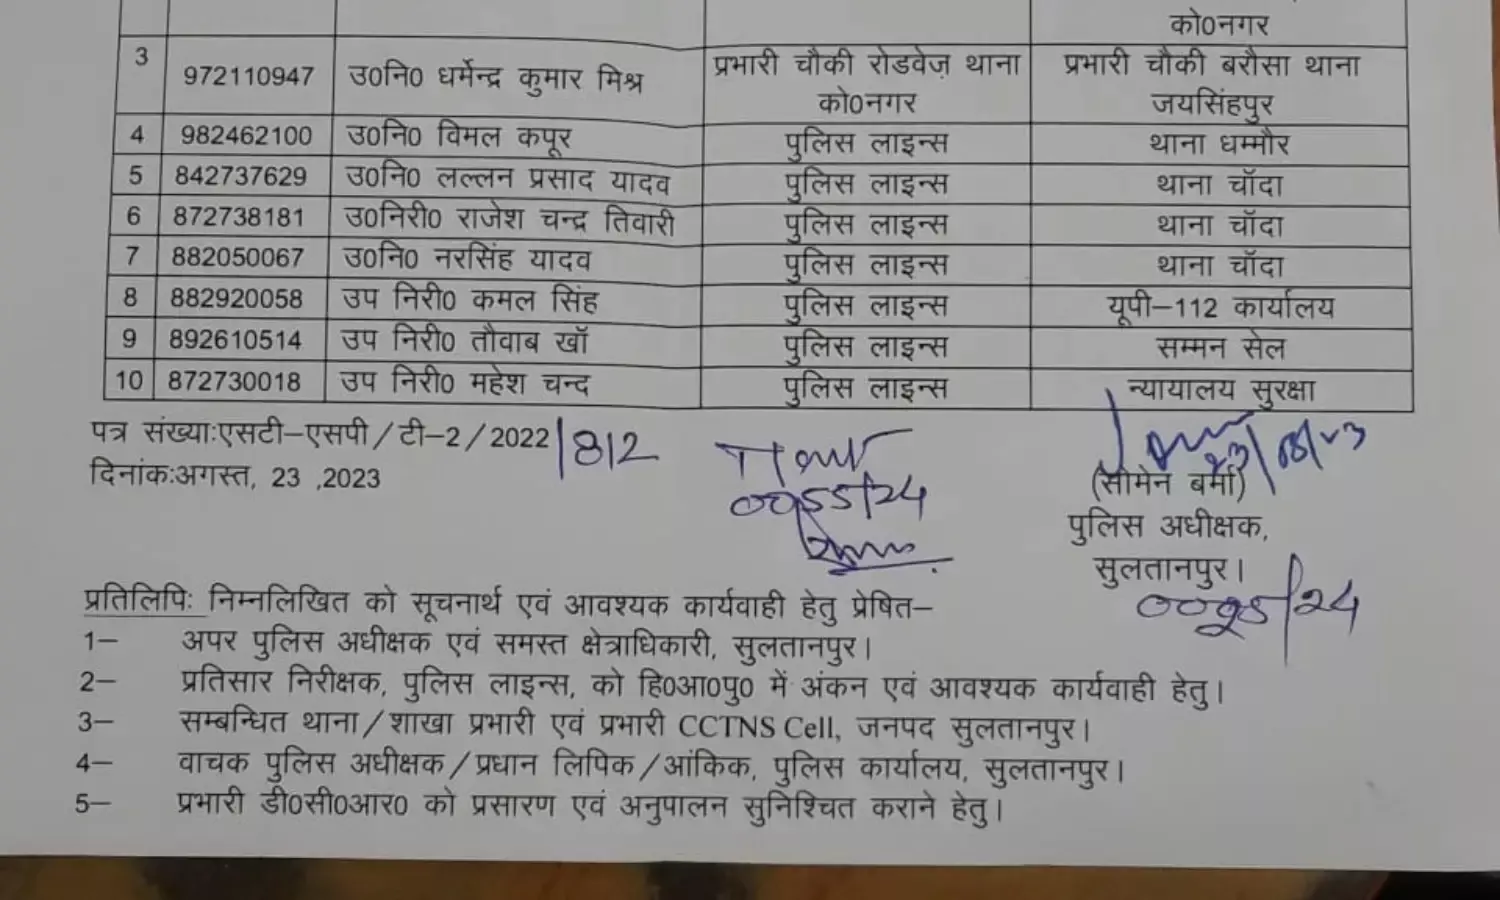 को0नगर
3 972110947 उ0नि0 धर्मेन्द्र कुमार मिश्र प्रभारी चौकी रोडवेज़ थाना को0नगर प्रभारी चौकी बरौसा थाना जयसिंहपुर
4 982462100 उ0नि0 विमल कपूर पुलिस लाइन्स थाना धम्मौर
5 842737629 उ0नि0 लल्लन प्रसाद यादव पुलिस लाइन्स थाना चॉदा
6 872738181 उ0निरी0 राजेश चन्द्र तिवारी पुलिस लाइन्स थाना चॉदा
7 882050067 उ0नि0 नरसिंह यादव पुलिस लाइन्स थाना चॉदा
8 882920058 उप निरी0 कमल सिंह पुलिस लाइन्स यूपी–112 कार्यालय
9 892610514 उप निरी0 तौवाब खॉ पुलिस लाइन्स सम्मन सेल
10 872730018 उप निरी0 महेश चन्द पुलिस लाइन्स न्यायालय सुरक्षा
पत्र संख्याःएसटी–एसपी/टी–2/2022/812
दिनांकःअगस्त, 23 ,2023
23/08/23
(सोमेन बर्मा)
पुलिस अधीक्षक,
सुलतानपुर।
प्रतिलिपिः निम्नलिखित को सूचनार्थ एवं आवश्यक कार्यवाही हेतु प्रेषित–
1– अपर पुलिस अधीक्षक एवं समस्त क्षेत्राधिकारी, सुलतानपुर।
2– प्रतिसार निरीक्षक, पुलिस लाइन्स, को हि0आ0पु0 में अंकन एवं आवश्यक कार्यवाही हेतु।
3– सम्बन्धित थाना/शाखा प्रभारी एवं प्रभारी CCTNS Cell, जनपद सुलतानपुर।
4– वाचक पुलिस अधीक्षक/प्रधान लिपिक/आंकिक, पुलिस कार्यालय, सुलतानपुर।
5– प्रभारी डी0सी0आर0 को प्रसारण एवं अनुपालन सुनिश्चित कराने हेतु।